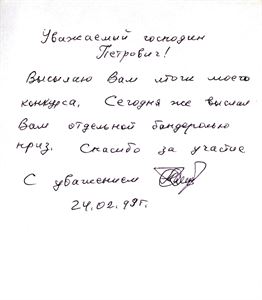 Уважаемый господин
Петрович!
Высылаю Вам итоги моего
конкурса. Сегодня же выслал
Вам отдельной бандеролью
приз. Спасибо за участие
С уважением
24.02.99г.